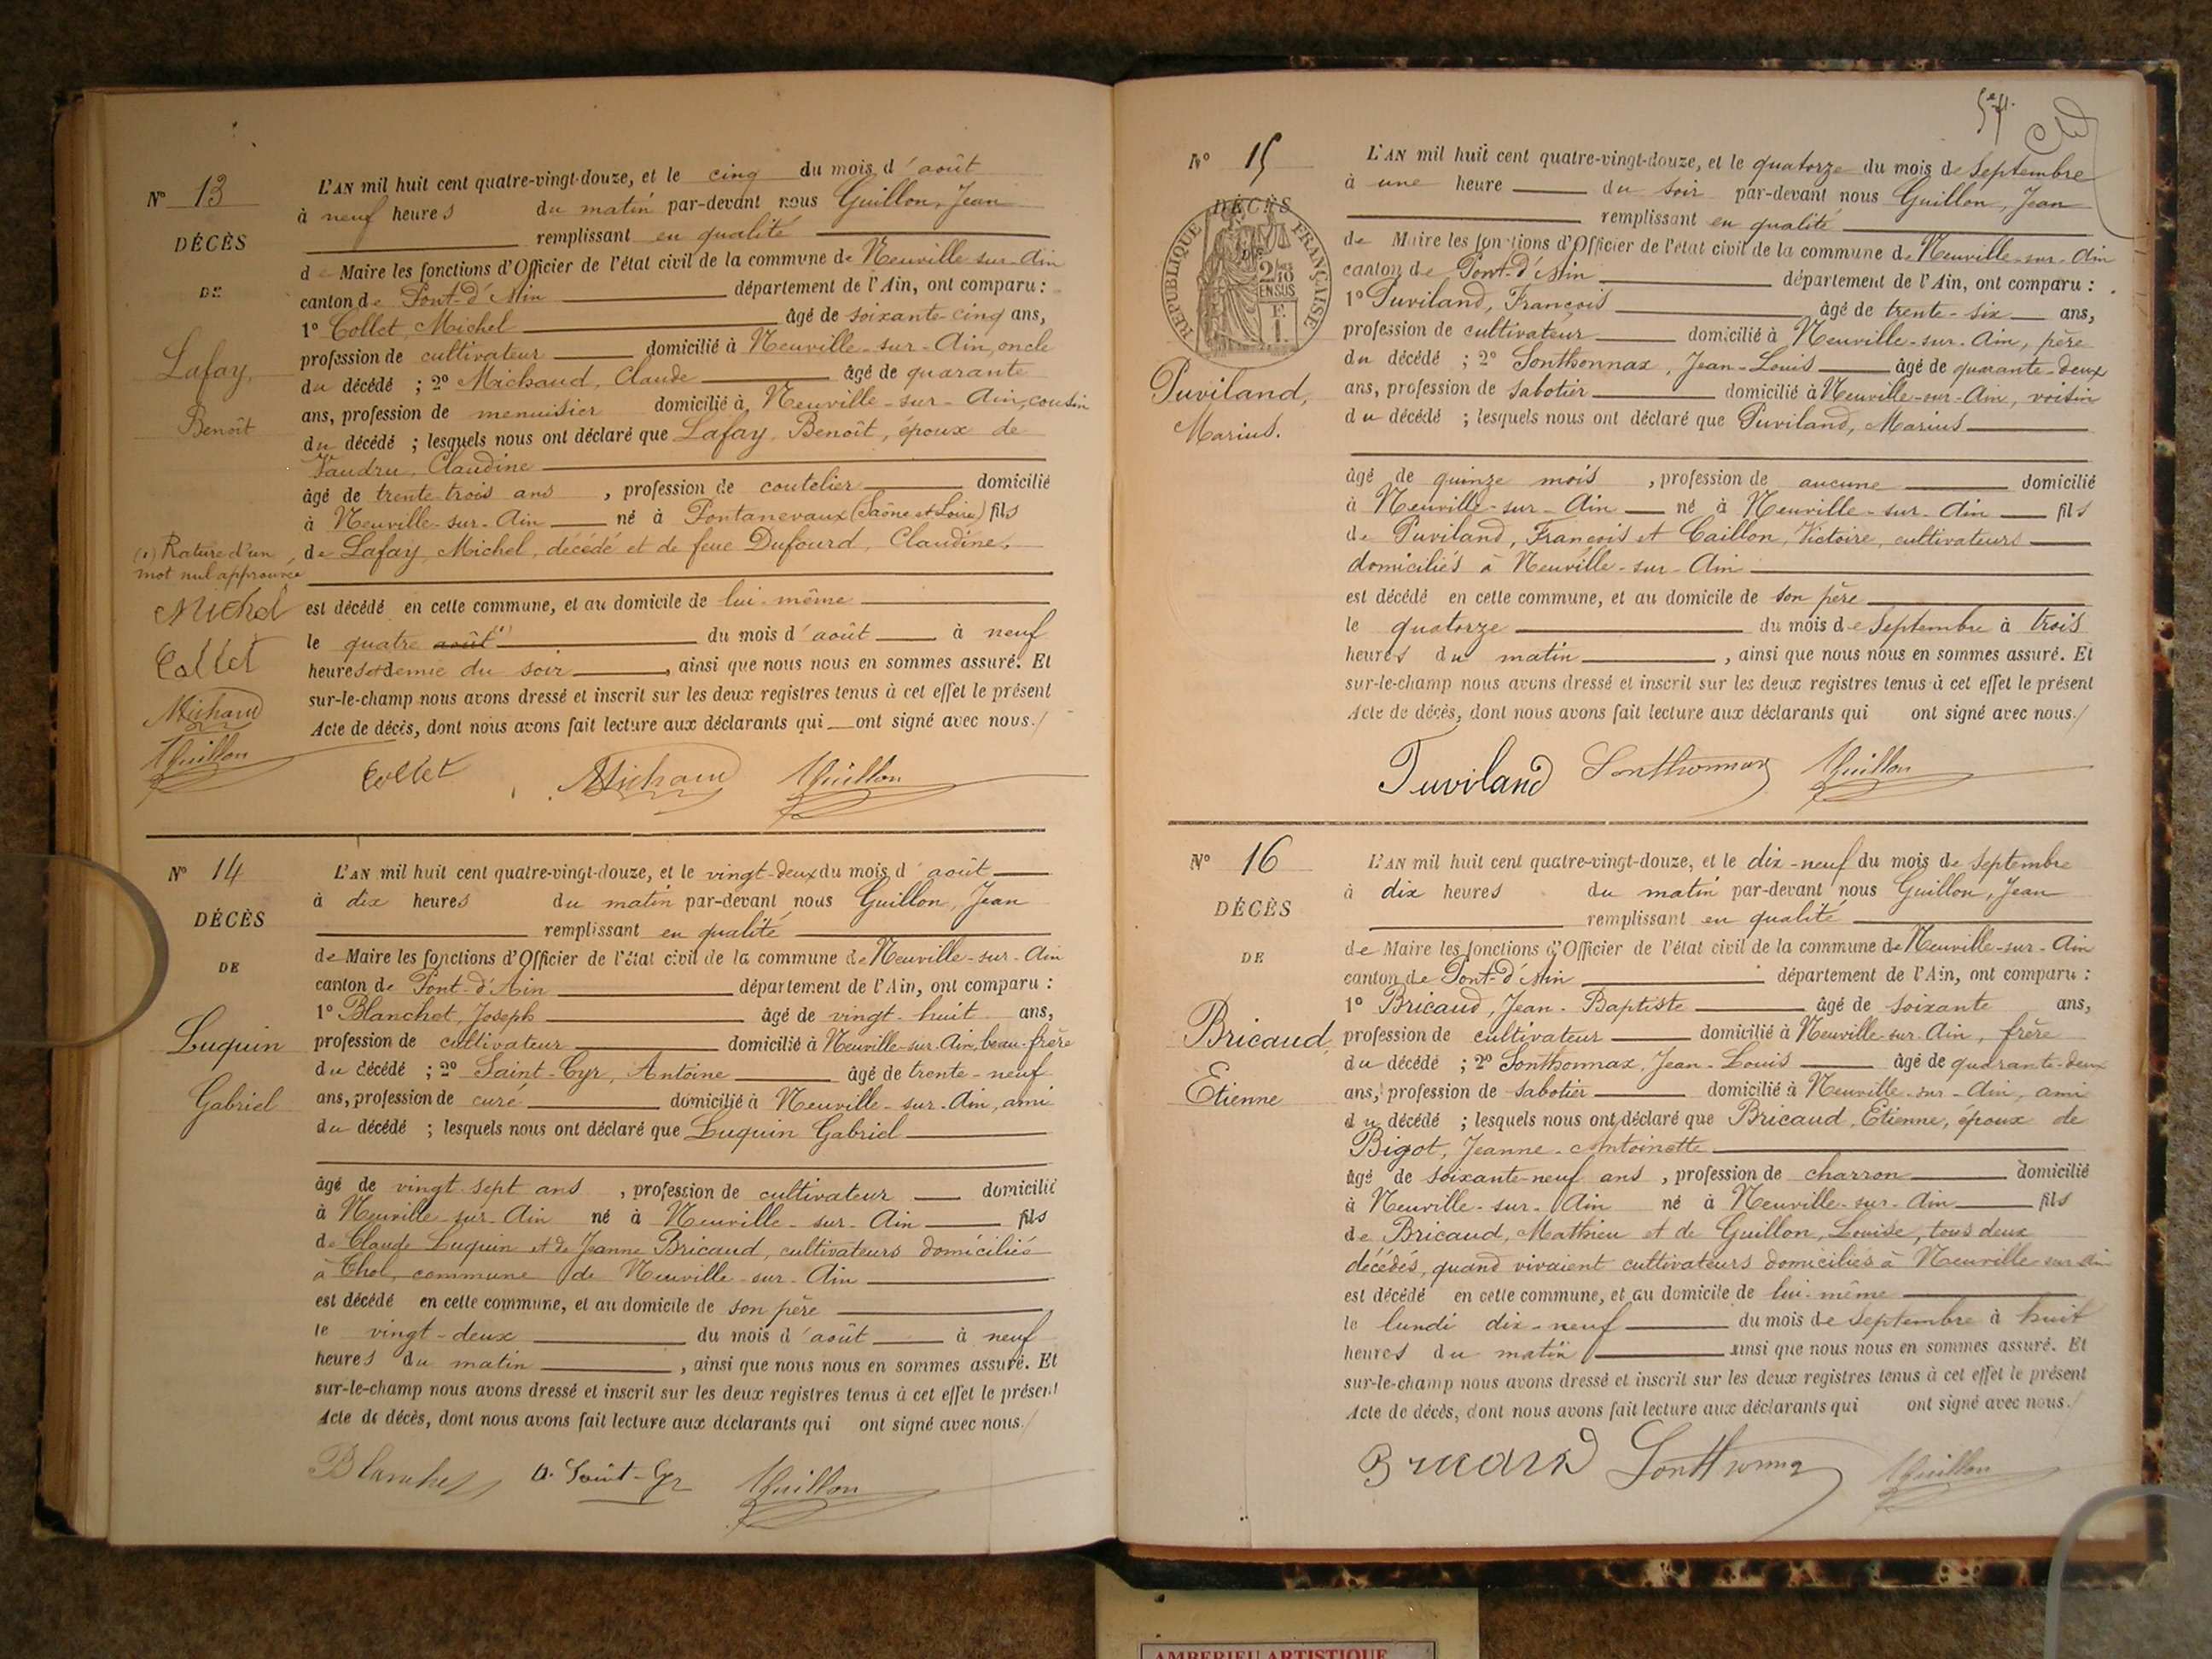 N° 13
DÉCÈS
DE
Lafay,
Benoît
(1) Rature d'un
mot nul approuvée
Michel
Collet
Michaud
JGuillon
L'AN mil huit cent quatre-vingt-douze, et le cinq du mois d'août
à neuf heures du matin par-devant nous Guillon, Jean
remplissant en qualité
de Maire les fonctions d'Officier de l'état civil de la commune de Neuville-sur-Ain
canton de Pont-d'Ain département de l'Ain, ont comparu :
1° Collet, Michel âgé de soixante-cinq ans,
profession de cultivateur domicilié à Neuville-sur-Ain, oncle
du décédé ; 2° Michaud, Claude âgé de quarante
ans, profession de menuisier domicilié à Neuville-sur-Ain, cousin
du décédé ; lesquels nous ont déclaré que Lafay, Benoît, époux de
Vaudru, Claudine
âgé de trente-trois ans , profession de coutelier domicilié
à Neuville-sur-Ain né à Pontanevaux (Saône et Loire) fils
de Lafay, Michel, décédé et de feue Dufourd, Claudine.
est décédé en cette commune, et au domicile de lui-même
le quatre août (1) du mois d'août à neuf
heures et demie du soir , ainsi que nous nous en sommes assuré. Et
sur-le-champ nous avons dressé et inscrit sur les deux registres tenus à cet effet le présent
Acte de décès, dont nous avons fait lecture aux déclarants qui ont signé avec nous./
Collet Michaud JGuillon
N° 14
DÉCÈS
DE
Luquin
Gabriel
L'AN mil huit cent quatre-vingt-douze, et le vingt-deux du mois d'août
à dix heures du matin par-devant nous Guillon, Jean
remplissant en qualité
de Maire les fonctions d'Officier de l'état civil de la commune de Neuville-sur-Ain
canton de Pont-d'Ain département de l'Ain, ont comparu :
1° Blanchet, Joseph âgé de vingt-huit ans,
profession de cultivateur domicilié à Neuville-sur-Ain, beau-frère
du décédé ; 2° Saint-Cyr, Antoine âgé de trente-neuf
ans, profession de curé domicilié à Neuville-sur-Ain, ami
du décédé ; lesquels nous ont déclaré que Luquin Gabriel
âgé de vingt-sept ans , profession de cultivateur domicilié
à Neuville-sur-Ain né à Neuville-sur-Ain fils
de Claude Luquin et de Jeanne Bricaud, cultivateurs domiciliés
à Thol, commune de Neuville-sur-Ain
est décédé en cette commune, et au domicile de son père
le vingt-deux du mois d'août à neuf
heures du matin , ainsi que nous nous en sommes assuré. Et
sur-le-champ nous avons dressé et inscrit sur les deux registres tenus à cet effet le présent
Acte de décès, dont nous avons fait lecture aux déclarants qui ont signé avec nous./
Blanchet A. Saint-Cyr JGuillon
N° 15
DÉCÈS
RÉPUBLIQUE FRANÇAISE
2/10 EN SUS
Puviland,
Marius.
L'AN mil huit cent quatre-vingt-douze, et le quatorze du mois de septembre
à une heure du soir par-devant nous Guillon, Jean
remplissant en qualité
de Maire les fonctions d'Officier de l'état civil de la commune de Neuville-sur-Ain
canton de Pont-d'Ain département de l'Ain, ont comparu :
1° Puviland, François âgé de trente-six ans,
profession de cultivateur domicilié à Neuville-sur-Ain, père
du décédé ; 2° Sonthonnax, Jean-Louis âgé de quarante-deux
ans, profession de sabotier domicilié à Neuville-sur-Ain, voisin
du décédé ; lesquels nous ont déclaré que Puviland, Marius
âgé de quinze mois , profession de aucune domicilié
à Neuville-sur-Ain né à Neuville-sur-Ain fils
de Puviland, François et Caillon, Victoire, cultivateurs
domiciliés à Neuville-sur-Ain
est décédé en cette commune, et au domicile de son père
le quatorze du mois de septembre à trois
heures du matin , ainsi que nous nous en sommes assuré. Et
sur-le-champ nous avons dressé et inscrit sur les deux registres tenus à cet effet le présent
Acte de décès, dont nous avons fait lecture aux déclarants qui ont signé avec nous./
Puviland Sonthonnax JGuillon
N° 16
DÉCÈS
DE
Bricaud,
Etienne
L'AN mil huit cent quatre-vingt-douze, et le dix-neuf du mois de septembre
à dix heures du matin par-devant nous Guillon, Jean
remplissant en qualité
de Maire les fonctions d'Officier de l'état civil de la commune de Neuville-sur-Ain
canton de Pont-d'Ain département de l'Ain, ont comparu :
1° Bricaud, Jean-Baptiste âgé de soixante ans,
profession de cultivateur domicilié à Neuville-sur-Ain, frère
du décédé ; 2° Sonthonnax, Jean-Louis âgé de quarante-deux
ans, profession de sabotier domicilié à Neuville-sur-Ain, ami
du décédé ; lesquels nous ont déclaré que Bricaud, Etienne, époux de
Bigot, Jeanne-Antoinette
âgé de soixante-neuf ans , profession de charron domicilié
à Neuville-sur-Ain né à Neuville-sur-Ain fils
de Bricaud, Mathieu et de Guillon, Louise, tous deux
décédés, quand vivaient cultivateurs domiciliés à Neuville sur Ain
est décédé en cette commune, et au domicile de lui-même
le lundi dix-neuf du mois de septembre à huit
heures du matin ainsi que nous nous en sommes assuré. Et
sur-le-champ nous avons dressé et inscrit sur les deux registres tenus à cet effet le présent
Acte de décès, dont nous avons fait lecture aux déclarants qui ont signé avec nous./
Bricaud Sonthonnax JGuillon
AMBERIEU ARTISTIQUE